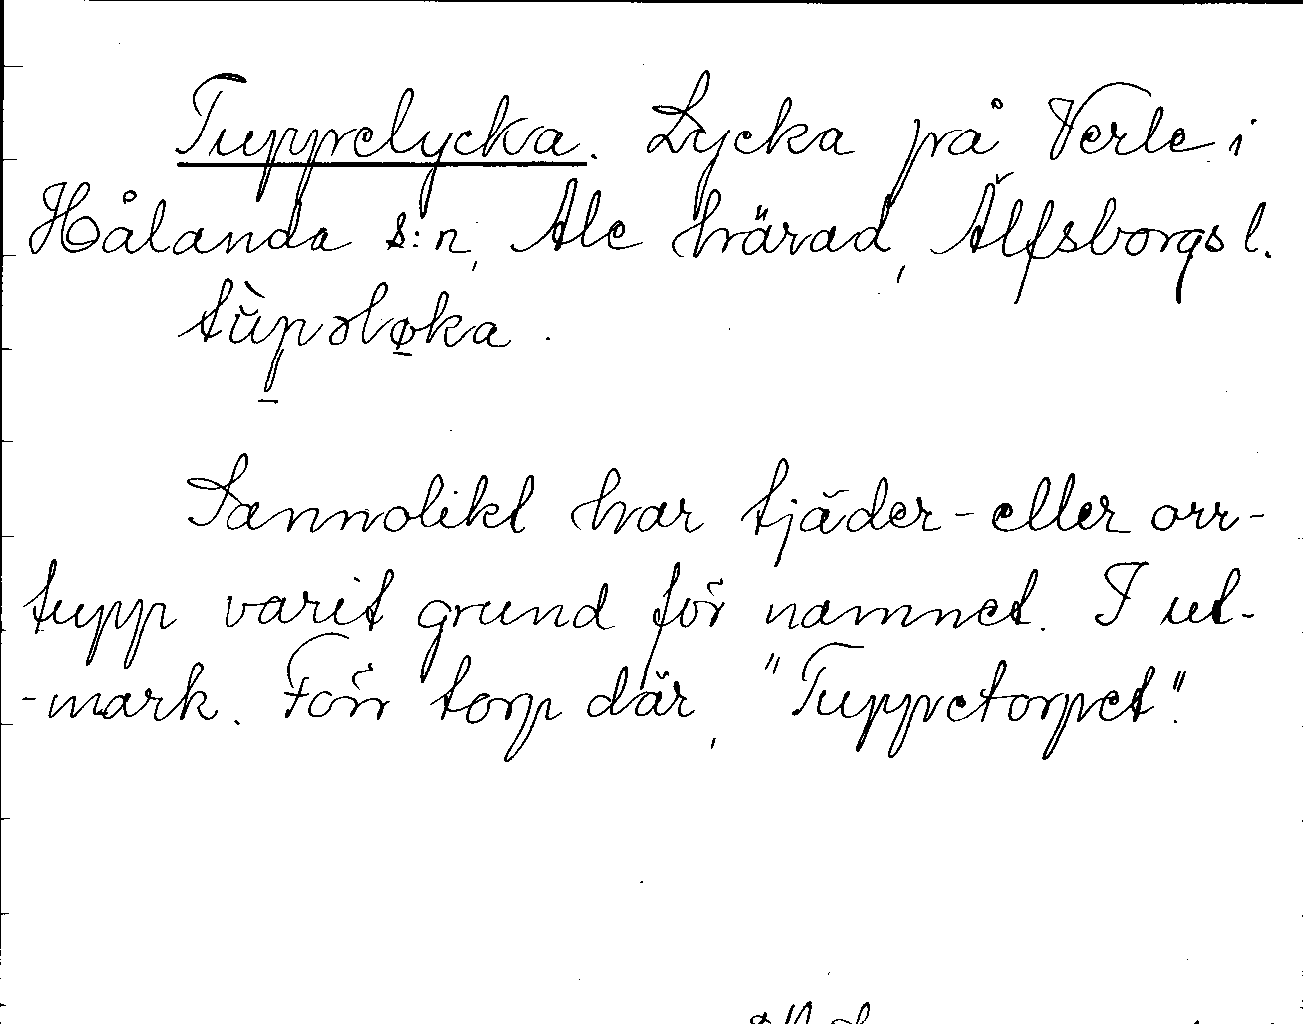 Tuppelycka. Lycka på Verle i
Hålanda s:n, Ale härad, Älfsborgs l.
tùp̲əlø̲ka.
Sannolikt har tjäder- eller orr-
tupp varit grund för namnet. I ut-
-mark. Förr torp där, "Tuppetorpet".